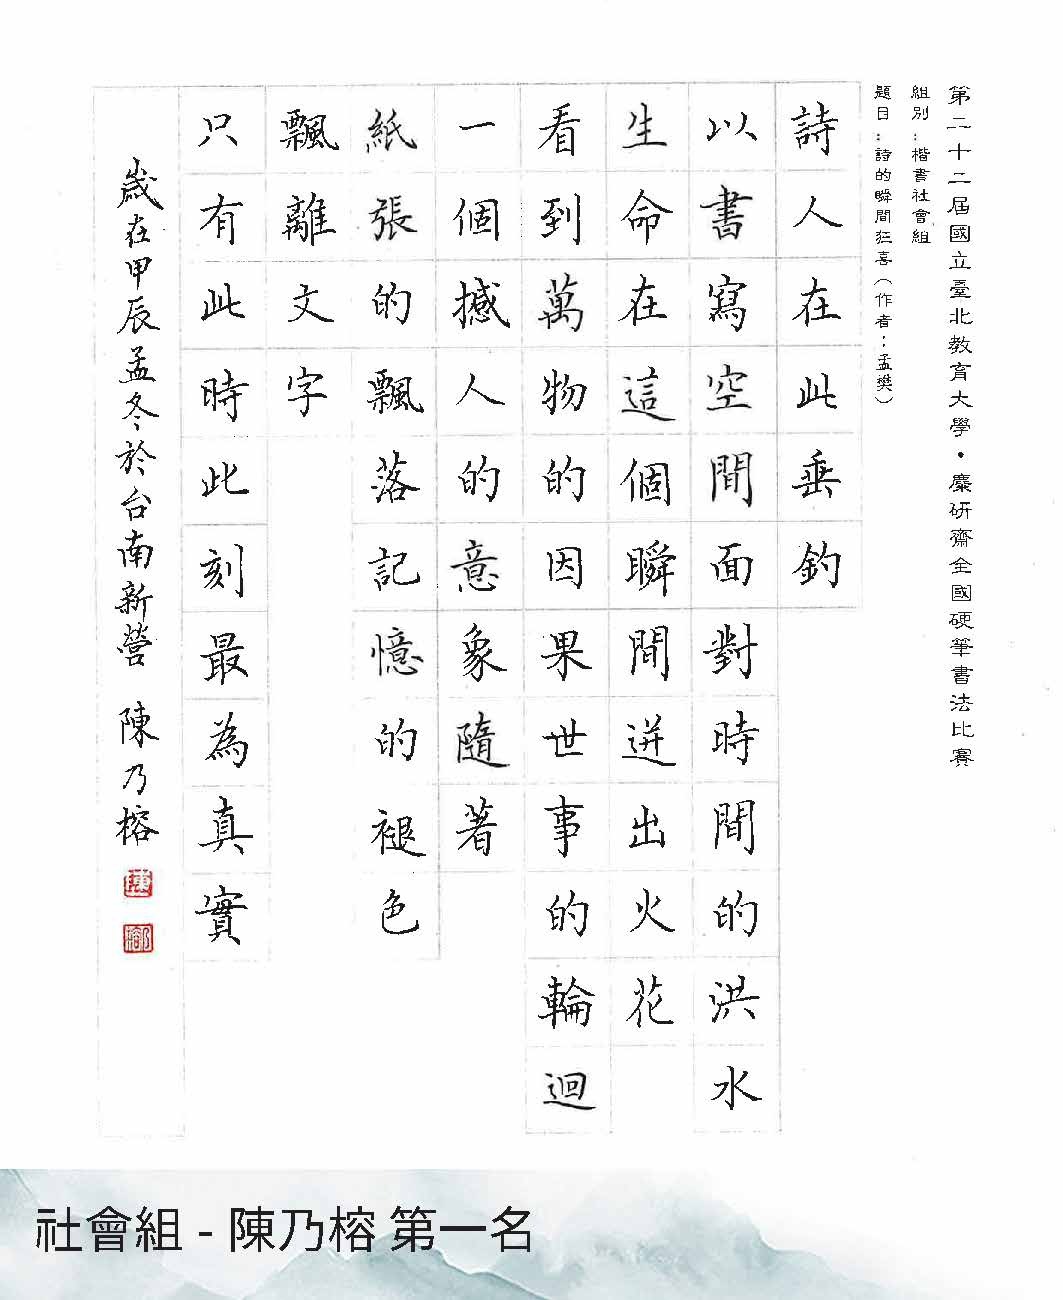 第二十二屆國立臺北教育大學・麋研齋全國硬筆書法比賽
組別：楷書社會組
題目：詩的瞬間狂喜（作者：孟樊）
詩人在此垂釣
以書寫空間面對時間的洪水
生命在這個瞬間迸出火花
看到萬物的因果世事的輪迴
一個撼人的意象隨著
紙張的飄落記憶的褪色
飄離文字
只有此時此刻最為真實
歲在甲辰孟冬於台南新營 陳乃榕
陳
乃榕
社會組 - 陳乃榕 第一名